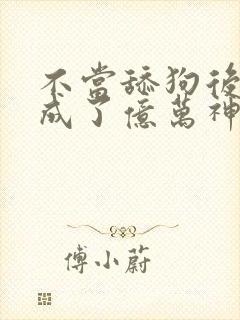 不當舔狗後
成了億萬神
傅小蔚